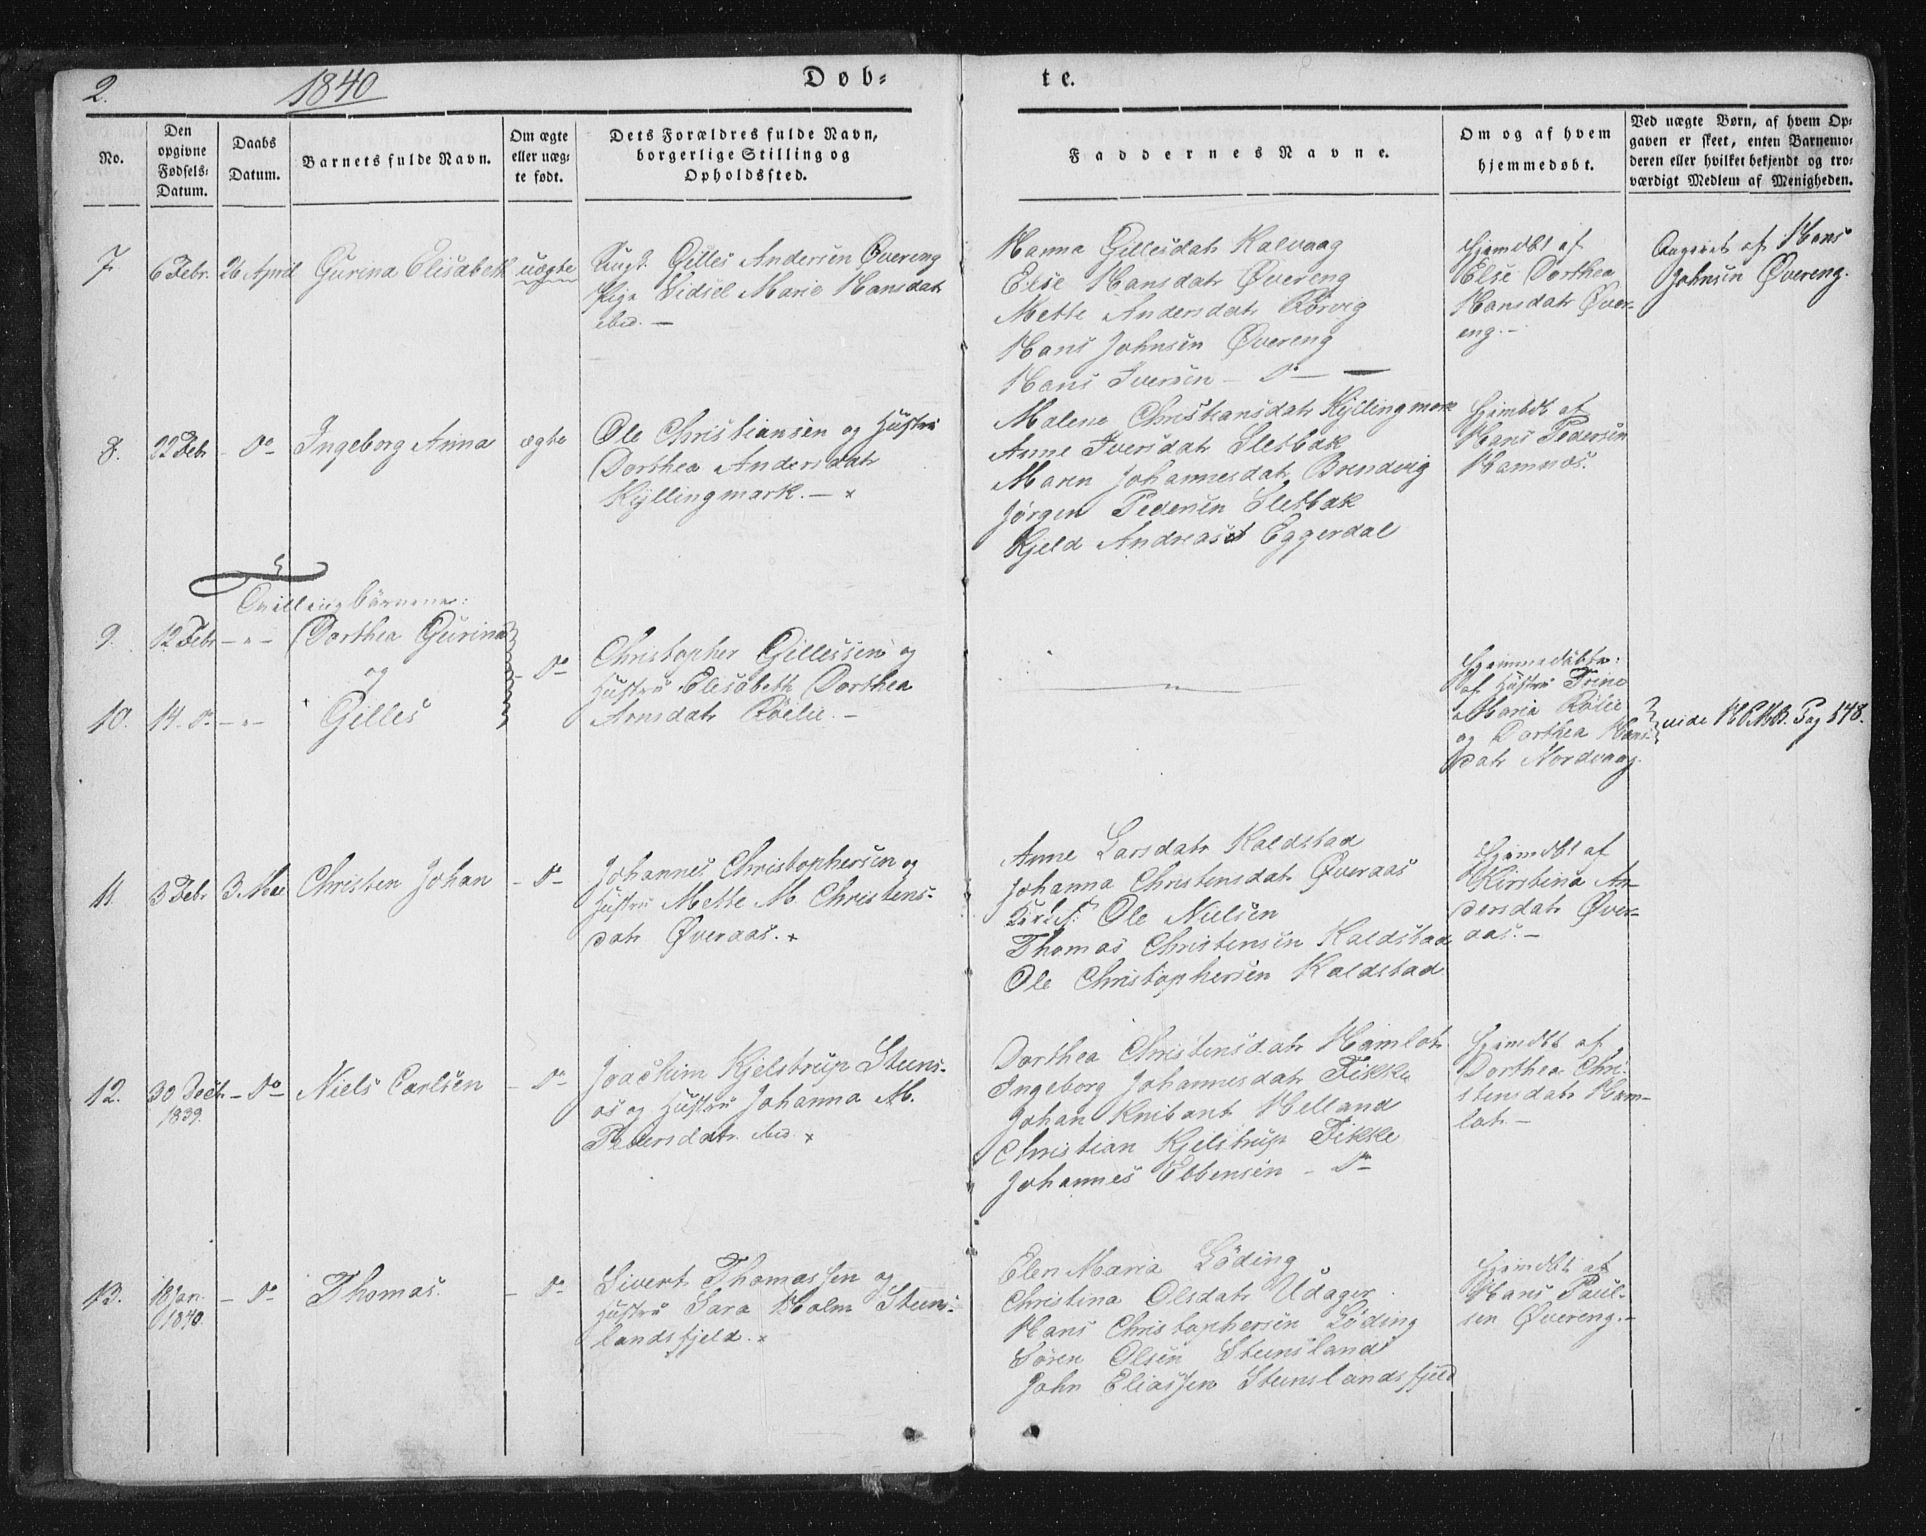 2.
1840
Døb-
te.
No.
Den opgivne Fødsels-Datum.
Daabs Datum.
Barnets fulde Navn.
Om ægte eller uægte født.
Dets Forældres fulde Navn, borgerlige Stilling og Opholdssted.
Faddernes Navne.
Om og af hvem hjemmedøbt.
Ved uægte Børn, af hvem Opgaven er skeet, enten Barnemoderen eller hvilket bekjendt og troværdigt Medlem af Menigheden.
7.
6 Febr.
26 April
Gurina Elisabeth
uægte
Ungk. Gilles Andersen Øvereng
Pige Sidsel Maria Hansdatr
ibid. —
Hanna Gillesdatr Kalvaag
Else Hansdatr Øvereng
Mette Andersdatr Rørvig
Hans Johnsen Øvereng
Hans Iversen — do —
Hjemdbt af
Else Dorthea
Hansdatr Øver-
eng. —
Angivet af Hans
Johnsen Øvereng.
8.
22 Feb
— do
Ingeborg Anna
ægte
Ole Christiansen og Hustru
Dorthea Andersdatr
Kyllingmark. — ×
Malene Christiansdatr Kyllingmark
Anne Iversdatr Sletbak
Maren Johannesdatr Brendvig
Jørgen Pedersen Sletbak
Kjeld Andreas Eggerdal
Hjembdt af
Hans Pedersen
Hamnøs.
Tvillingbørnene:
9.
12 Febr
— " —
Dorthea Gurina
og
10.
14. do
— " —
Gilles
— do
Christopher Gillessen og
Hustru Elisabeth Dorthea
Arnsdatr Røelie. —
— " —
Hjemmedøbte:
af Hustru Trine
Maria Rølie
og Dorthea Hans-
datr Nordvaag.
vide Pag 548.
11.
3 Febr
3 Mai
Christen Johan
— do —
Johannes Christophersen og
Hustru Mette M. Christens-
datr Øveraas. ×
Anne Larsdatr Kaldstad
Johanna Christensdatr Øveraas
Ole Nielsen
Thomas Christensen Kaldstad
Ole Christophersen Kaldstad
Hjemdbt af
Kirstina An-
dersdatr Øver-
aas. —
12.
30 Decbr
1839.
— do
Niels Carlsen
— do
Joachim Kjelstrup Steens-
os og Hustru Johanna M.
Pedersdatr ibid. ×
Dorthea Christensdatr Hamlot
Ingeborg Johannesdatr Fikke
Johan Knibant Helland
Christian Kjelstrup Fikke
Johannes Ebbensen — do
Hjemdbt af
Dorthea Chri-
stensdatr Ham-
lot —
13.
18 Jan.
1840.
— do
Thomas.
— do
Sivert Thomassen og
Hustru Sara Holm Steens-
landsfjeld. ×
Elen Maria Løding
Christina Olsdatr Udager.
Hans Christophersen Løding
Søren Olsen Steensland
John Eliassen Steenslandsfjeld
Hjemdbt af
Hans Paul-
sen Øvereng. —